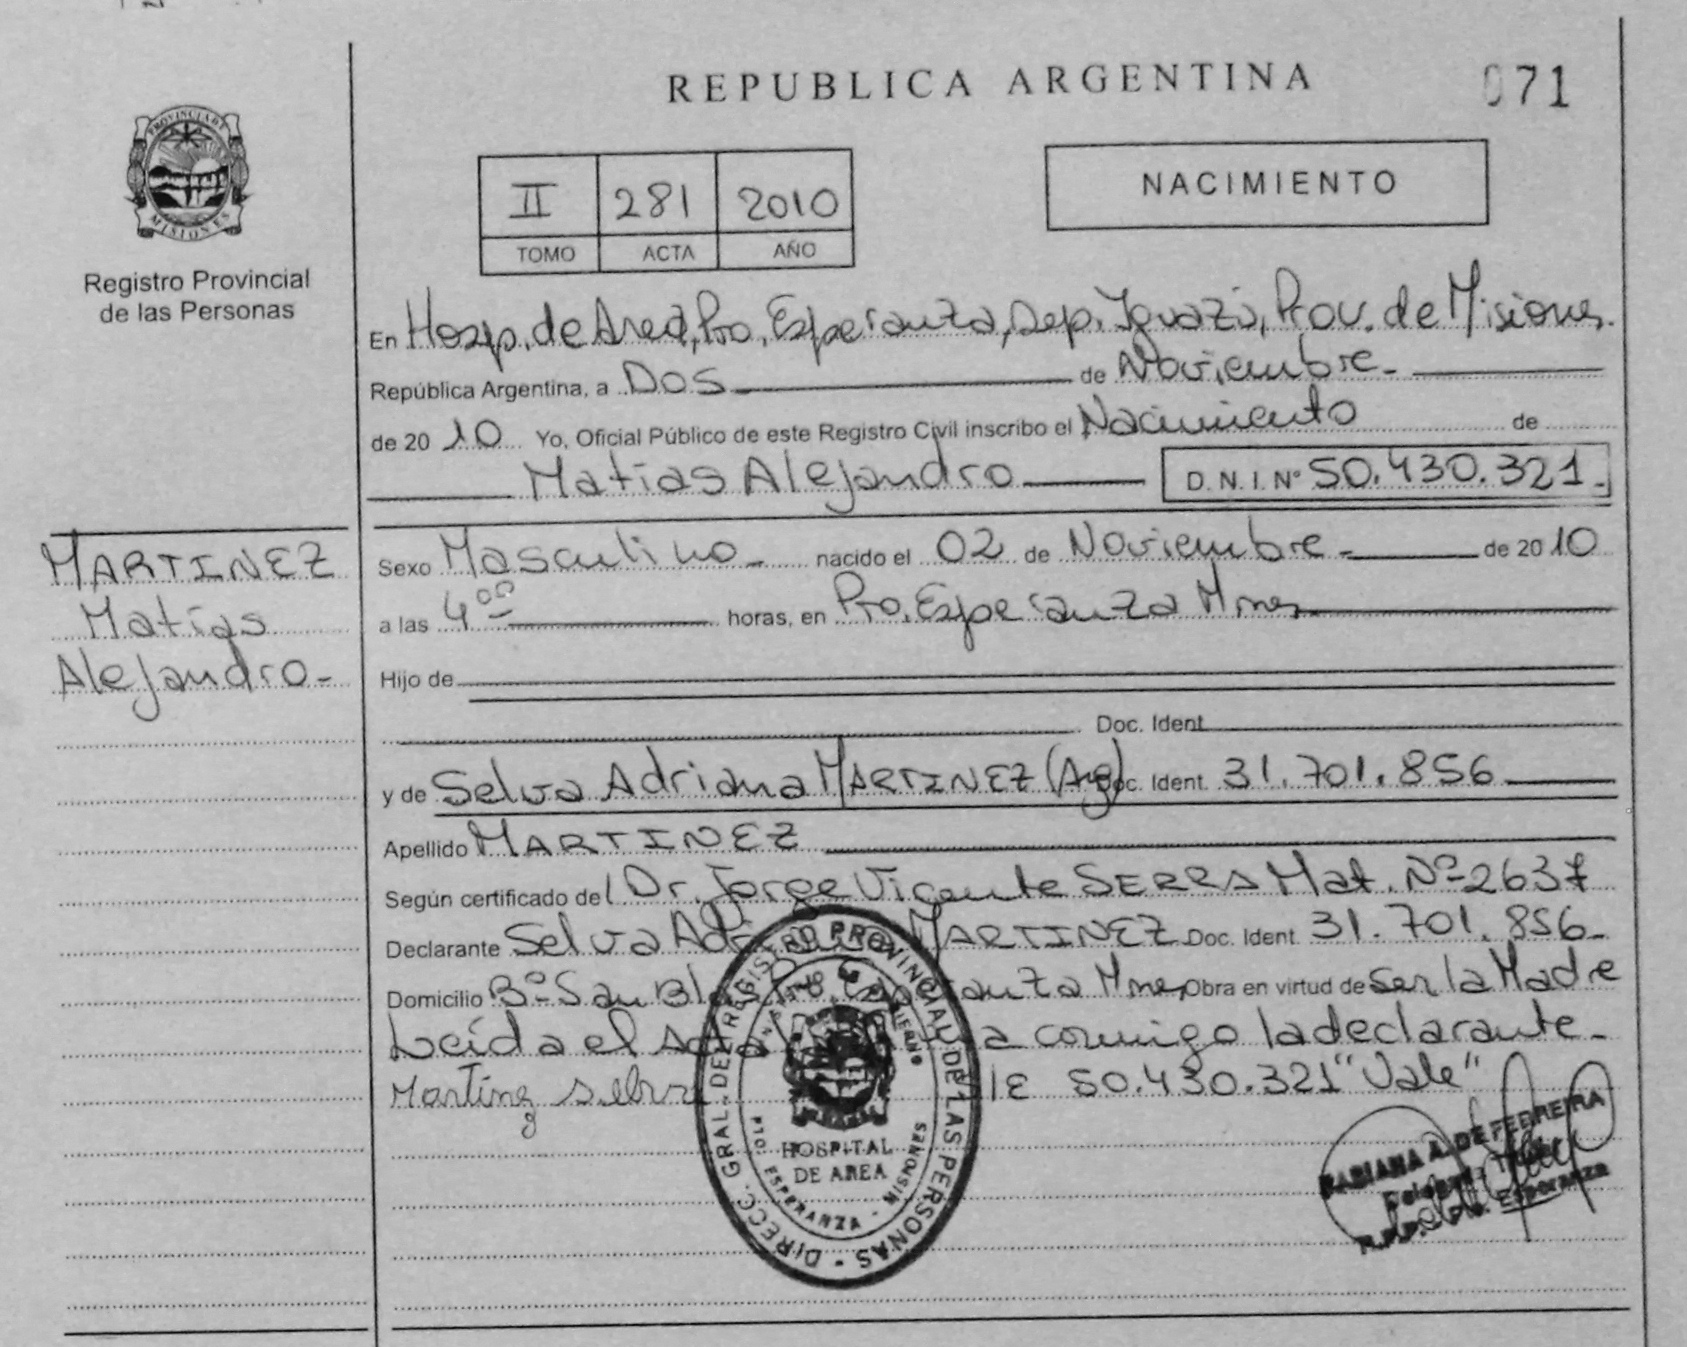 REPUBLICA ARGENTINA
071
PROVINCIA DE
MISIONES
Registro Provincial
de las Personas
II 281 2010
TOMO ACTA AÑO
NACIMIENTO
En Hosp. de Area, Pto. Esperanza, Dep. Iguazú, Prov. de Misiones.
República Argentina, a Dos de Noviembre
de 20 10 Yo, Oficial Público de este Registro Civil inscribo el Nacimiento de
Matias Alejandro D.N.I. Nº 50.430.321.
MARTINEZ
Matías
Alejandro
Sexo Masculino nacido el 02 de Noviembre de 20 10
a las 4ºº horas, en Pto. Esperanza Mnes
Hijo de
Doc. Ident.
y de Selva Adriana MARTINEZ (Arg) Doc. Ident. 31.701.856
Apellido MARTINEZ
Según certificado del Dr. Jorge Vicente SERRA Mat. Nº 2637
Declarante Selva MARTINEZ Doc. Ident. 31.701.856
Domicilio Bº San Esperanza Mnes, Obra en virtud de ser la Madre
Leída el Acta conmigo la declarante
50.430.321 "Vale"
DIRECC. GRAL. DEL REGISTRO PROVINCIAL DE LAS PERSONAS
HOSPITAL
DE AREA
PTO. ESPERANZA - MISIONES
FABIANA A. DE FERREIRA
Esperanza